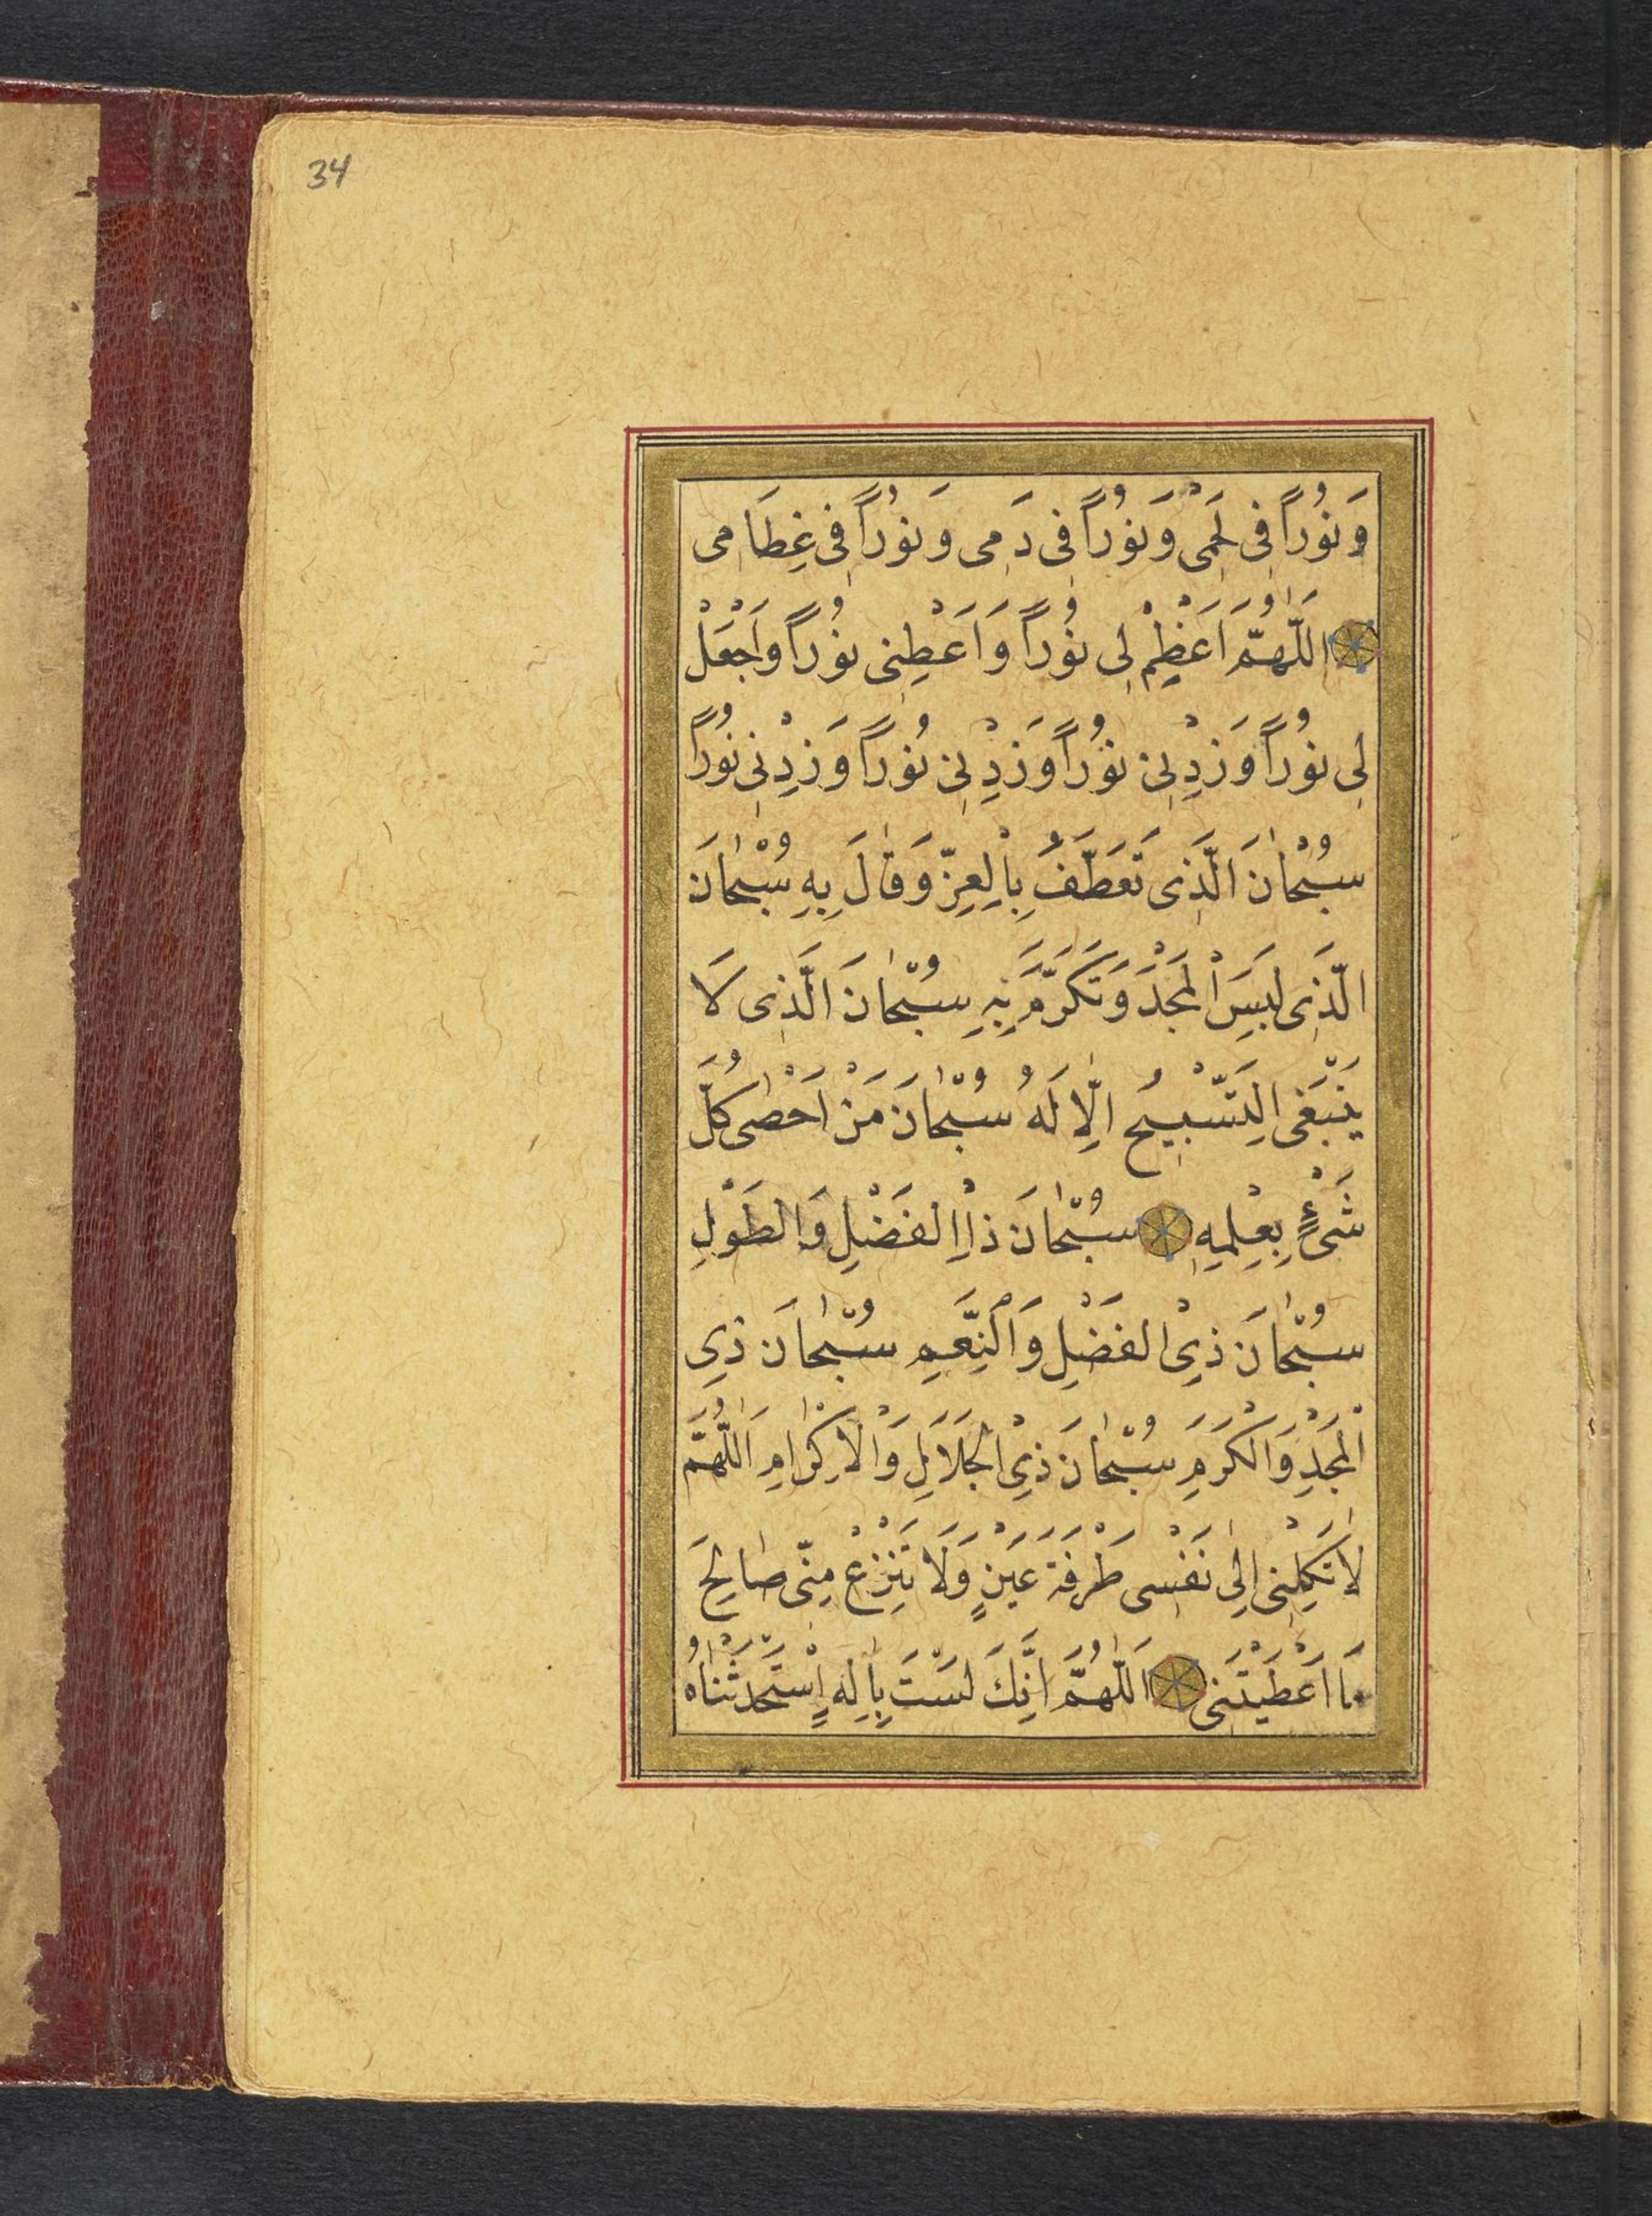 34
وَنُوُراً فِى لَحْمِى وَنُوُراً فِى دَمِى وَنُوُراً فِى عِظَامِى
اللّٰهُمَّ اَعْظِمْ لِى نُوُراً وَاَعْطِنِى نُوُراً وَاجْعَلْ
لِى نُوُراً وَزِدْنِىْ نُوُراً وَزِدْنِىْ نُوُراً وَزِدْنِىْ نُوُراً
سُبْحٰانَ الَّذِى تَعَطَّفَ بِالْعِزِّ وَقٰالَ بِهِ سُبْحٰانَ
الَّذِى لَبِسَ الْمَجْدَ وَتَكَرَّمَ بِهِ سُبْحٰانَ الَّذِى لَا
يَنْبَغِى التَّسْبِيحُ اِلّٰا لَهُ سُبْحٰانَ مَنْ اَحْصٰى كُلَّ
شَىْءٍ بِعِلْمِهِ سُبْحٰانَ ذِا الْفَضْلِ وَالطَوْلِ
سُبْحٰانَ ذِىْ الفَضْلِ وَالْنِّعَمِ سُبْحٰانَ ذِى
الْمَجْدِ وَالْكَرَمِ سُبْحٰانَ ذِىْ الْجَلَالِ وَالْاِكْرٰامِ اَللّٰهُمَّ
لَا تَكِلْنِى اِلٰى نَفْسِى طَرْفَةَ عَيْنٍ وَلَا تَنْزِعْ مِنِّى صٰالِحَ
مَا اَعْطَيْتَنِى اَللّٰهُمَّ اِنَّكَ لَسْتَ بِاِلٰهٍ اِسْتَحْدَثْنٰاهُ